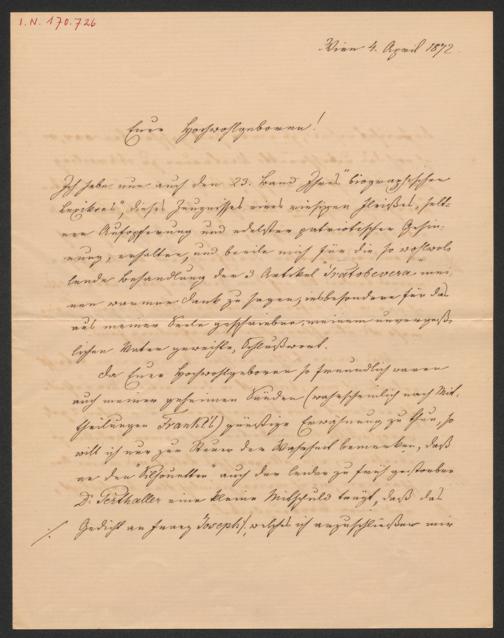 I.N. 170.726
Wien 4. April 1872.
Euer Hochwohlgeboren!
Ich habe nun auch den 23. Band Ihres "biographischen
Lexikons", dieses Zeugnisses eines riesigen Fleißes, selt-
ner Aufopferung und edelster patriotischer Gesin-
nung, erhalten, und beeile mich für die so wohlwol-
lende Behandlung der 3 Artikel Pratobevera mei-
nen warmen Dank zu sagen, insbesondere für das
aus meiner Seele geschriebene, meinem unvergeß-
lichen Vater geweihte, Schlußwort.
Da Euer Hochwohlgeboren so freundlich waren
auch meiner geheimen Sünden (wahrscheinlich nach Mit-
theilungen Frankl's) günstige Erwähnung zu thun, so
will ich nur zur Steuer der Wahrheit bemerken, daß
an den "Silhouetten" auch der leider zu früh gestorbene
Dr. Perthaller eine kleine Mitschuld trägt, daß das
Gedicht an Franz Joseph /. welches ich anzuschließen mir
./.